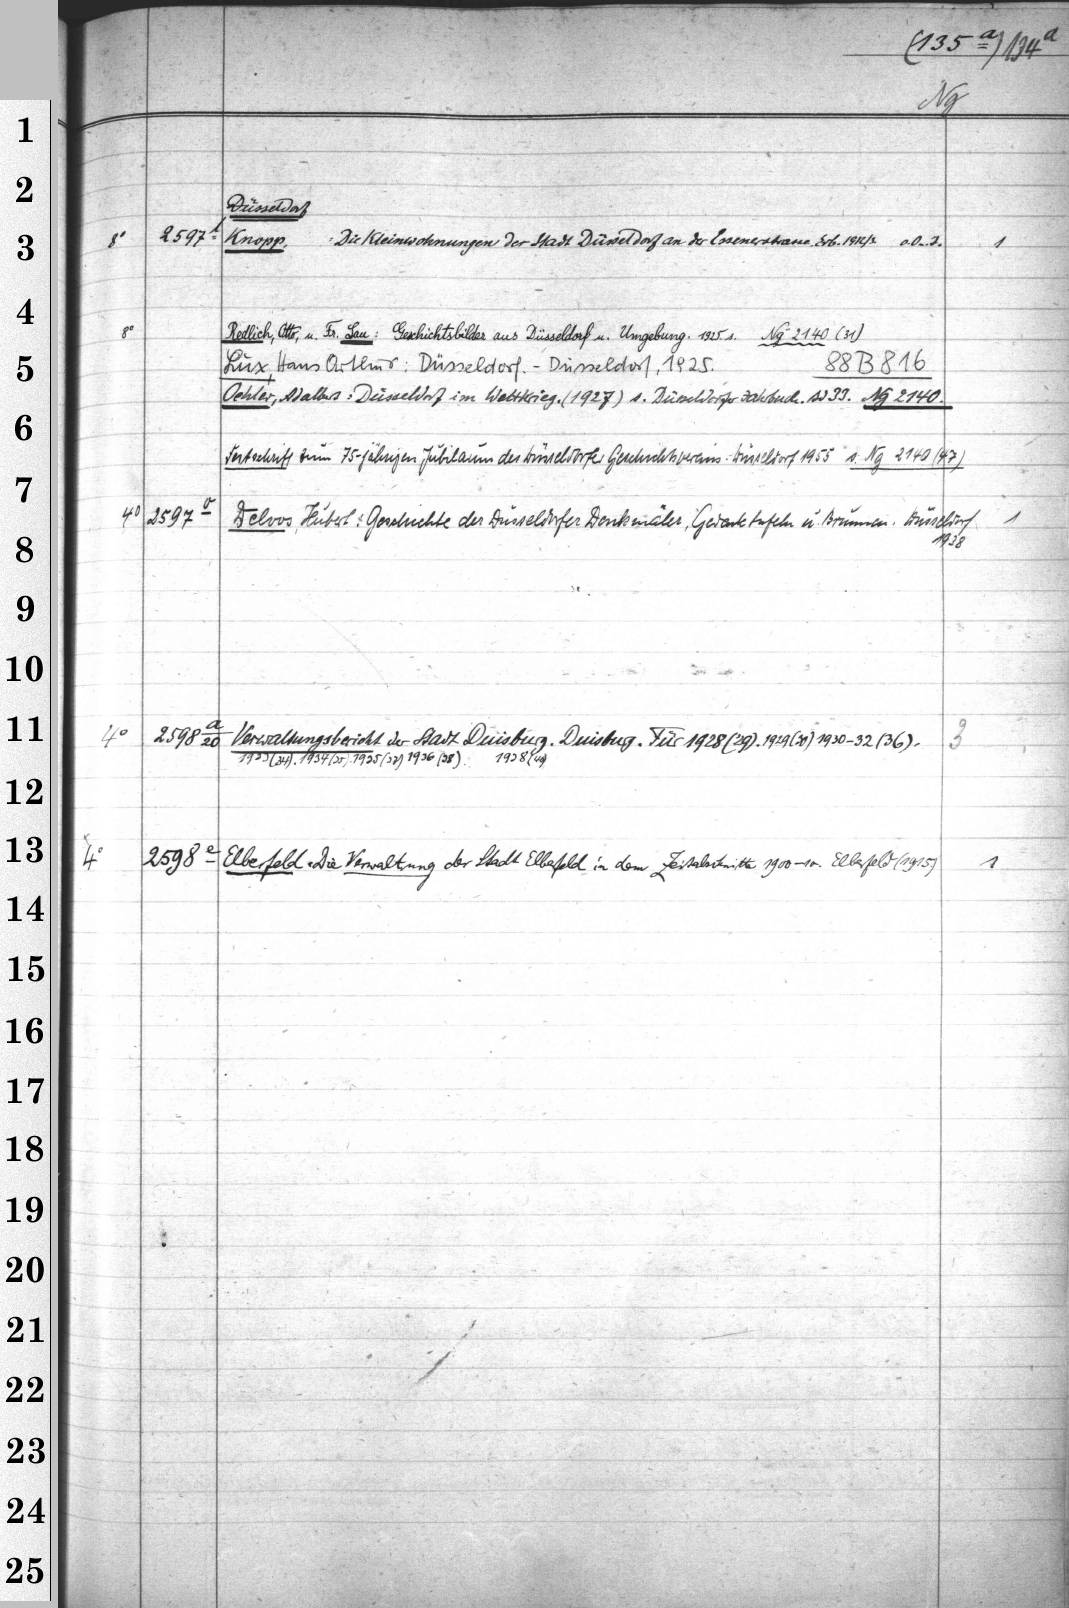 (135 a) 134 a
Ng
1
2
Düsseldorf
3 8° 2597 Knopp, : Die Kleinwohnungen der Stadt Düsseldorf an der Essenerstrasse. Erb. 1912/ o.O. J. 1
4
8° Redlich, Otto, u. Fr. Lau: Geschichtsbilder aus Düsseldorf u. Umgebung. 1925 s. Ng 2140 (31)
5 Lux, Hans Arthur: Düsseldorf. - Düsseldorf, 1925. 88 B 816
Oehler, Adalbert: Düsseldorf im Weltkrieg. (1927) s. Düsseldorfer Jahrbuch. Bd 33. Ng 2140.
6
Festschrift zum 75-jährigen Jubiläum des Düsseldorfer Geschichtsvereins. Düsseldorf 1955 s. Ng 2140 (47)
7
4° 2597 o Delvos, Hubert: Geschichte der Düsseldorfer Denkmäler, Gedenktafeln u. Brunnen. Düsseldorf 1
8 1938
9
10
11 4° 2598 a/20 Verwaltungsbericht der Stadt Duisburg. Duisburg. Für 1928 (29). 1929 (30) 1930-32 (36). 3
1933 (34). 1934 (35). 1935 (37) 1936 (38). 1938 (40)
12
13 4° 2598 e Elberfeld. Die Verwaltung der Stadt Elberfeld in dem Zeitabschnitte 1900-10. Elberfeld (1915) 1
14
15
16
17
18
19
20
21
22
23
24
25